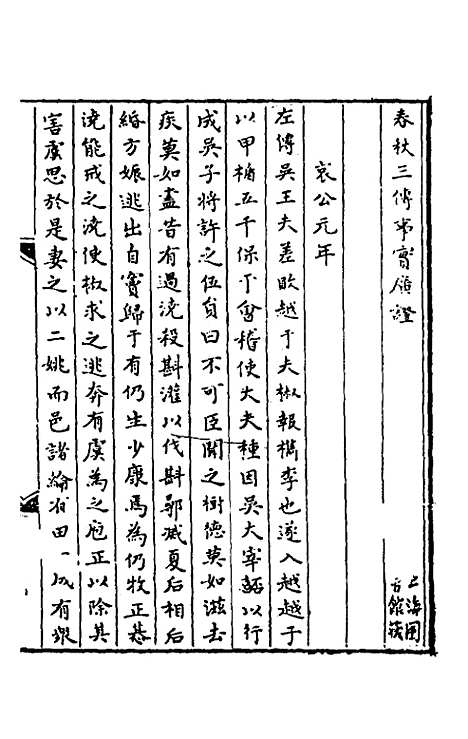 春秋三傳事實廣證
上海圖
古館筱
哀公元年
左傳吳王夫差敗越于夫椒報檇李也遂入越越子
以甲楯五千保于會稽使大夫種因吳大宰嚭以行
成吳子將許之伍負曰不可臣聞之樹德莫如滋去
疾莫如盡昔有過澆殺斟灌以伐斟鄩滅夏后相后
緡方娠逃出自竇歸于有仍生少康焉為仍牧正惎
澆能戒之澆使椒求之逃奔有虞為之庖正以除其
害虞思於是妻之以二姚而邑諸綸有田一成有眾